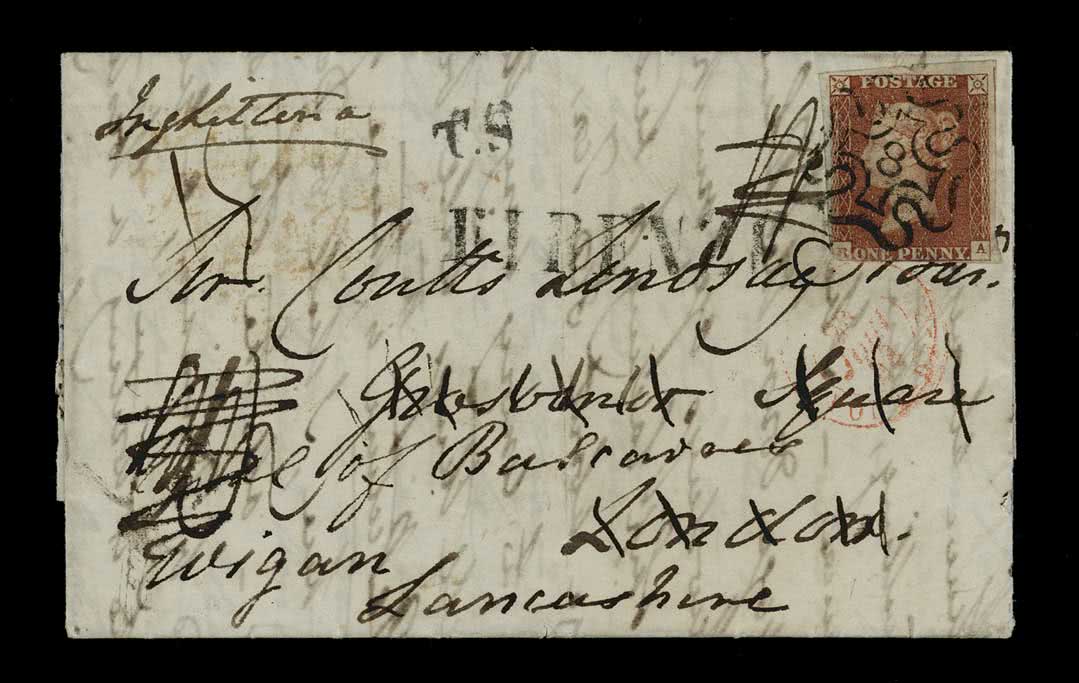 Inghilterra
T.S
FIRENZE
POSTAGE
8
ONE PENNY.
A
Sir. Coutts Lindsay
Grosvenor Square
of Balcarres
London.
Wigan
Lancashire